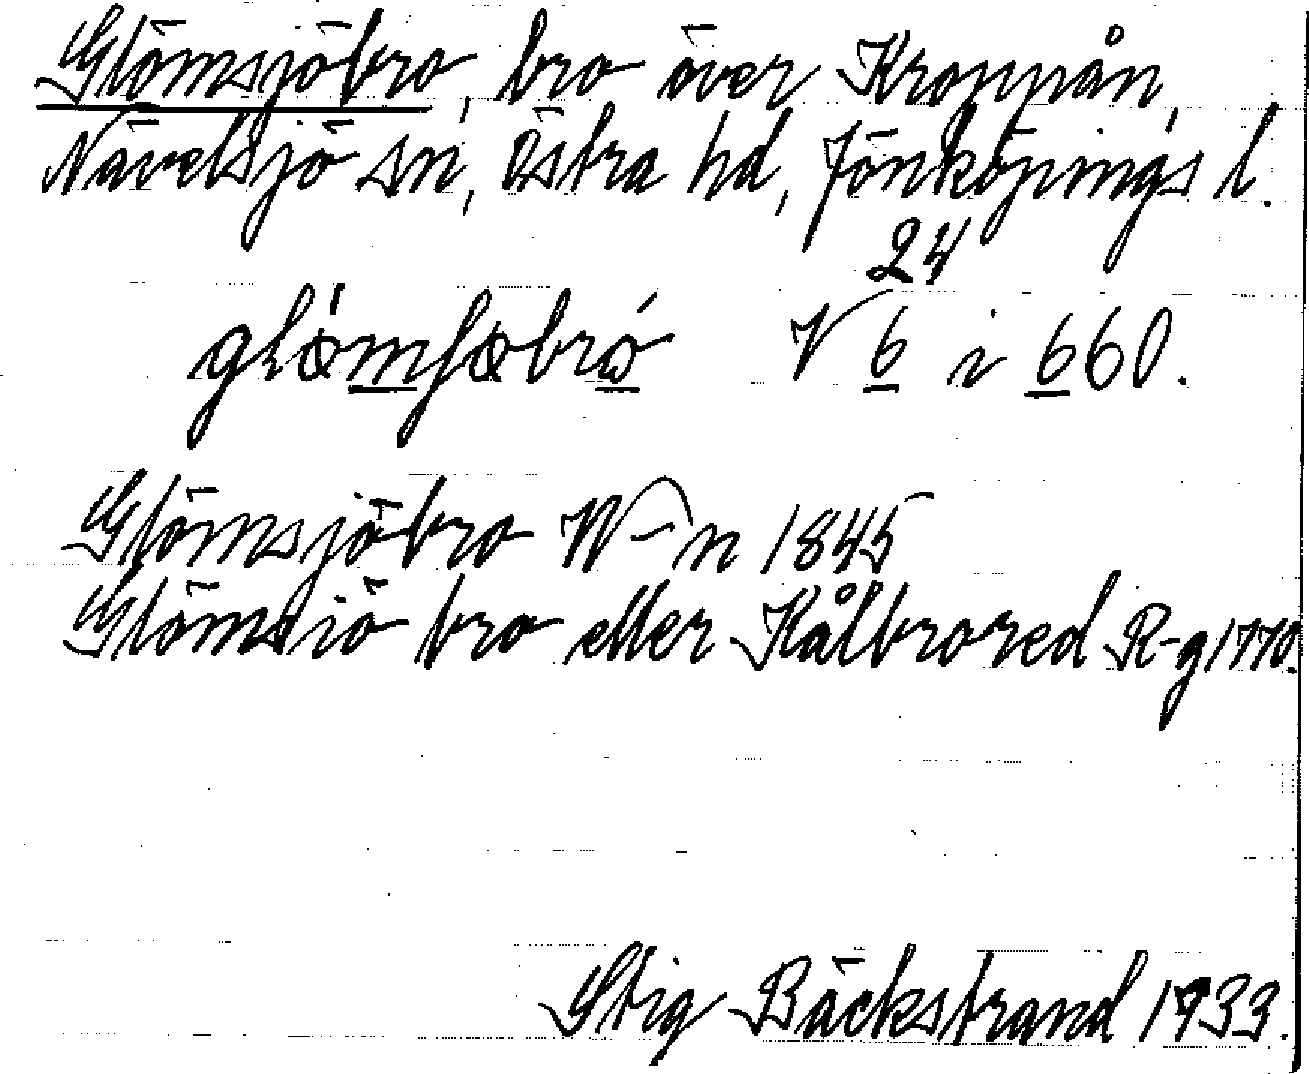 Glömsjöbro, bro över Kroppån,
Nävelsjö sn, Östra hd, Jönköpings l.
24
V 6 i 660.
Glömsjöbro W-n 1845
Glömsiö bro eller Kålbrored R-g 1770.
Stig Bäckstrand 1933.